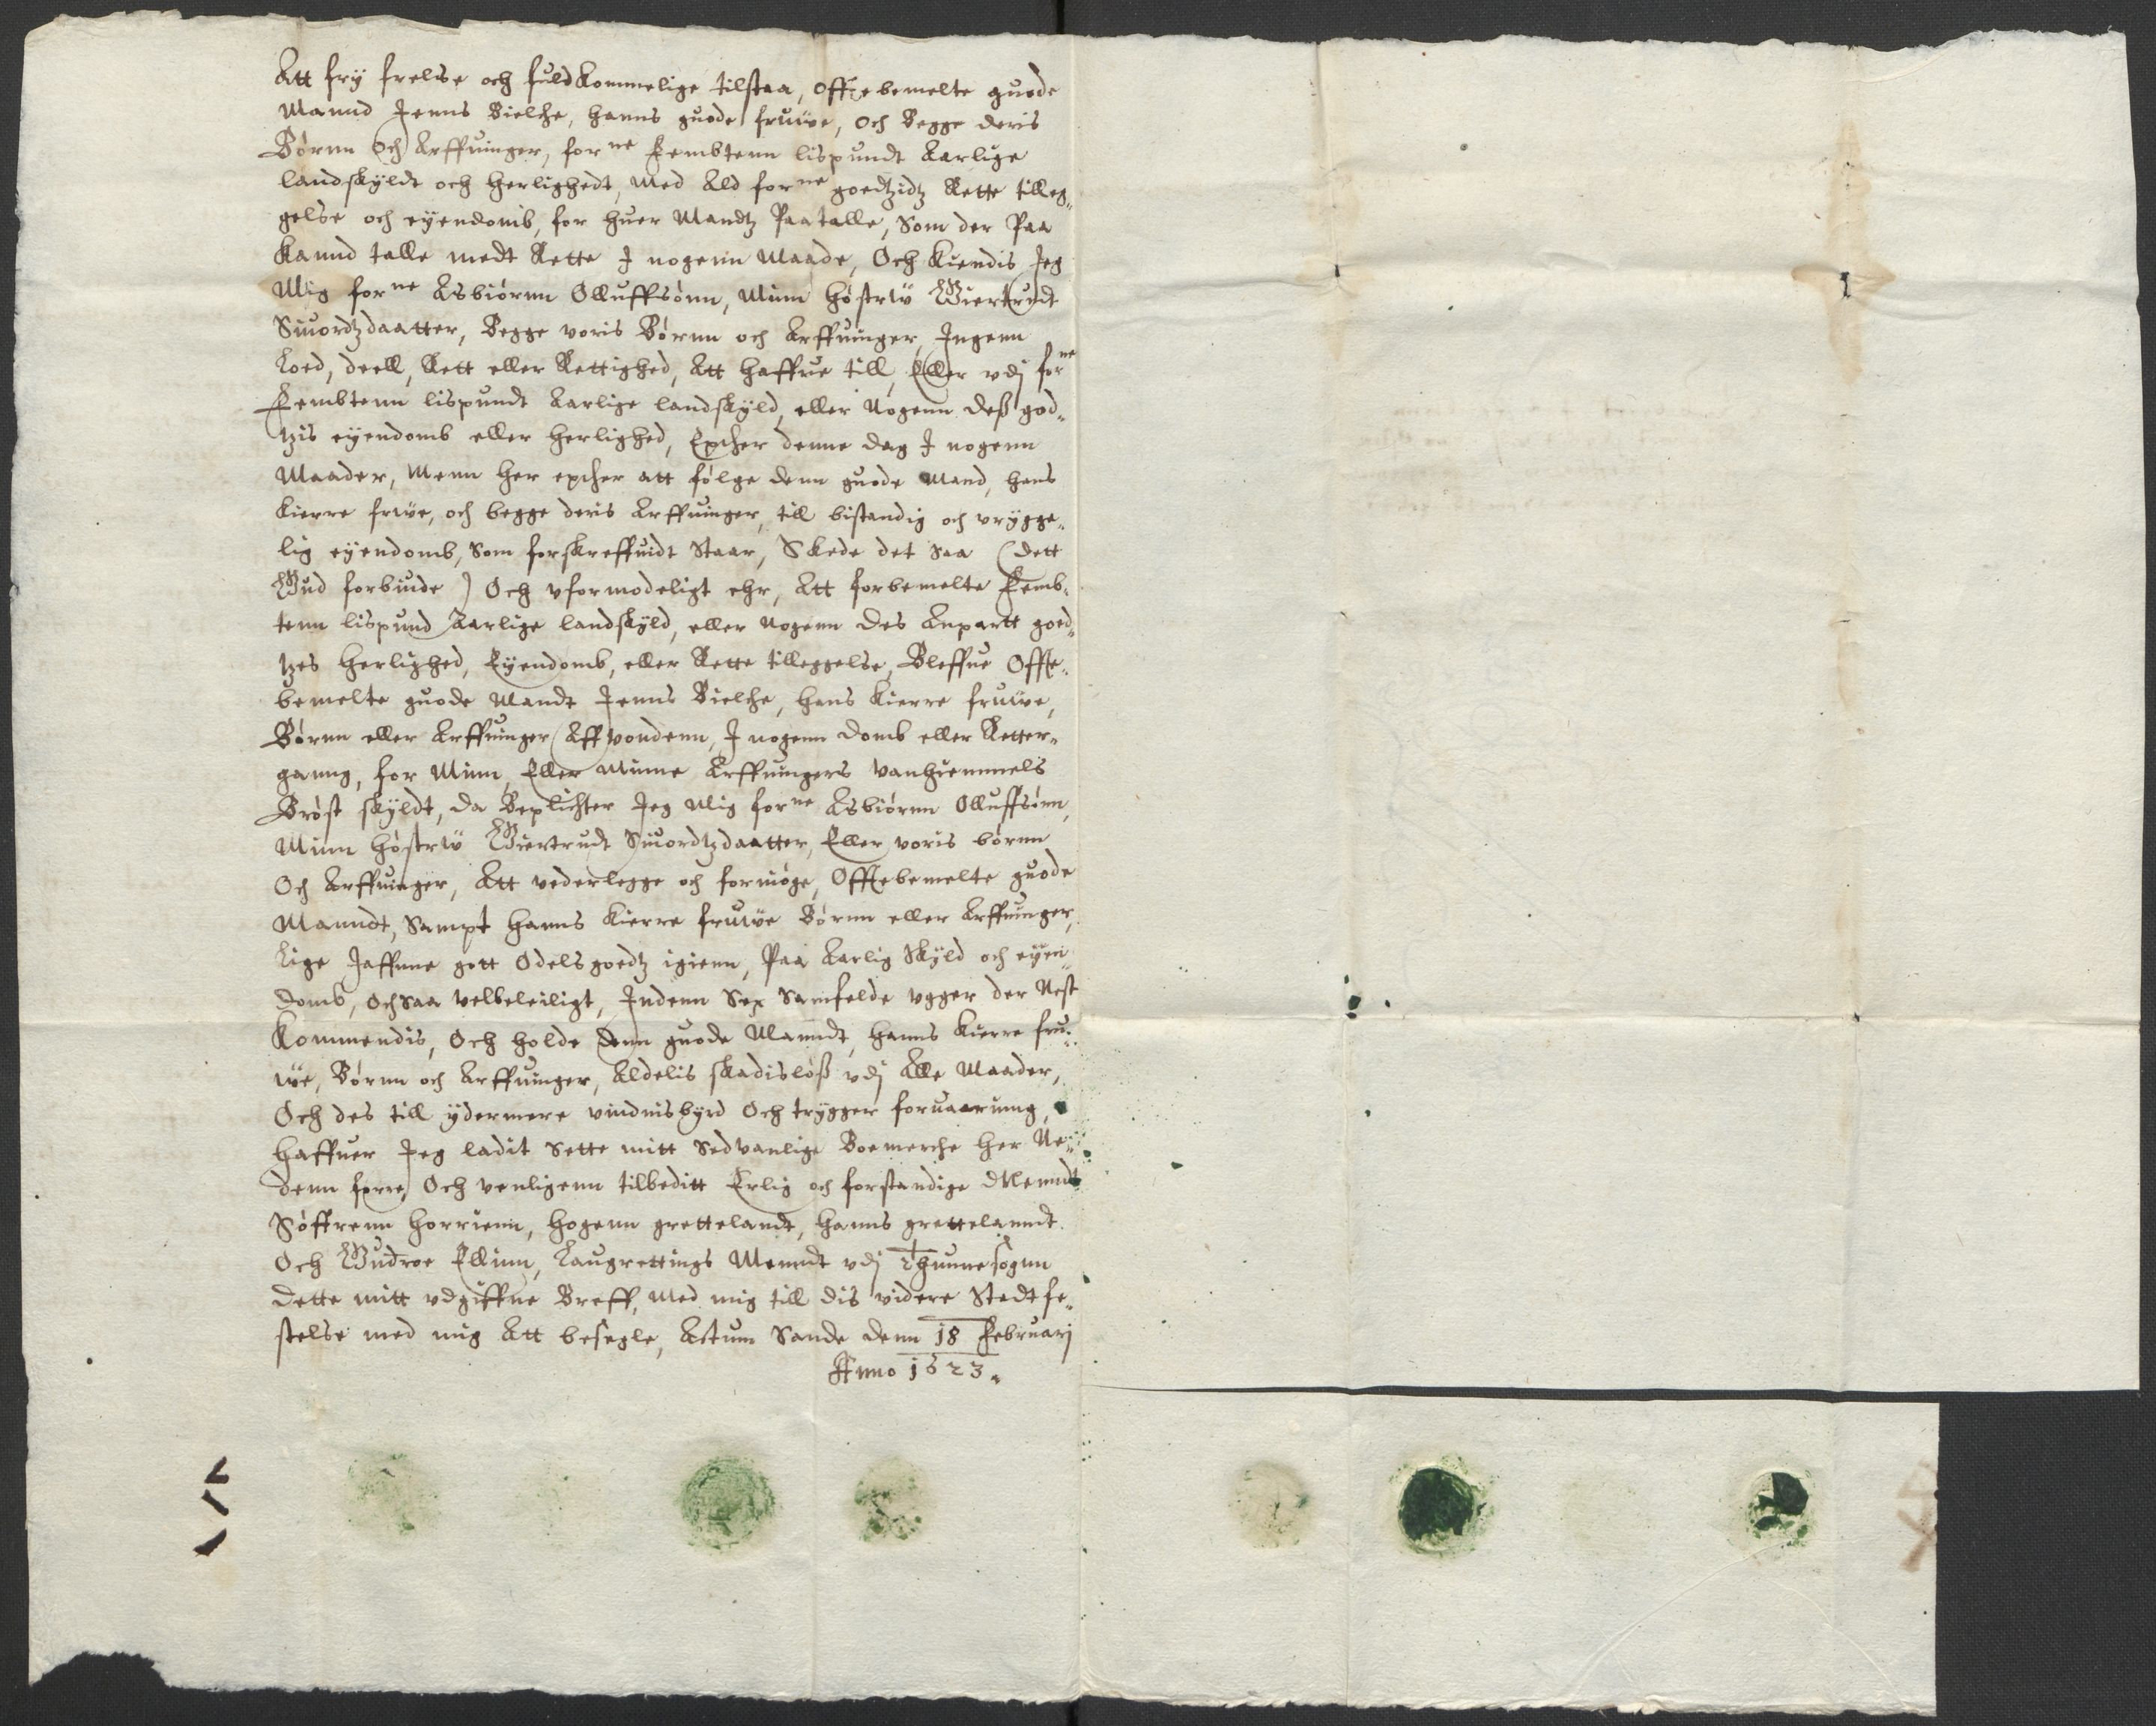 Att fry frelse och fuldkommelige tilstaa, offtebemelte guode
Mannd Jenns Bielche, hanns guode fruwe, och Begge deris
Børnn och Arffuinger, forne Fembtenn lispundt Aarlige
landskyldt och herlighedt, med Ald forne goedtzidtz Rette tilleg¬
gelse och eyendomb, for huer Mandtz Paatalle, Som der Paa
kannd talle medt Rette J nogenn Maade, Och kiendis Jeg
Mig forne Asbiørnn Olluffsønn, Minn høstrw Giertrudt
Siuordtzdaatter, Begge voris Børnn och Arffuinger, Jngenn
Loed, deell, Rett eller Rettighed, Att haffue till, Eller vdj forne
Fembtenn lispundt Aarlige landskyld, eller Nogenn deß god¬
tzis eyendomb eller herlighed, Epther denne dag J nogenn
Maader, Menn her epther att følge denn guode Mand, hans
kierre frwe, och begge deris Arffuinger, till bistandig och vrygge¬
lig eyendomb, Som forskreffuidt Staar, Skede det saa (dett
Gud forbiude) Och vformodeligt ehr, Att forbemelte Femb¬
tenn lispund Aarlige landskyld, eller Nogenn des Anpartt goed¬
tzes herlighed, Eyendomb, eller Rette tilleggelse, Bleffue Offte¬
bemelte guode Mandt Jenns Bielche, hans kierre fruwe,
Børnn eller Arffuinger Aff vondenn, J nogenn domb eller Retter¬
ganng, for Minn, Eller Minne Arffuingers vanhiemmels
Brøst skyldt, da Beplichter Jeg Mig forne Asbiørnn Olluffsønn,
Minn høstrw Giertrudt Siuordtzdaatter, Eller voris børnn
Och Arffuinger, Att vederlegge och fornøge, Offtebemelte guode
Manndt, Sampt hanns kierre fruwe Børnn eller Arffuinger,
Lige Jaffnne gott Odelsgoedtz igienn, Paa Aarlig Skyld och eyen¬
domb, Och saa velbeleiligt, Jndenn Sex Samfelde vgger der Nest
kommendis, Och holde denn guode Manndt, hanns kierre fru¬
we, Børnn och Arffuinger, Aldelis skadisløß vdj Alle Maader,
Och des till ydermere vindnisbyrd Och trygger foruaarinng,
haffuer Jeg ladit Sette mitt Sedvanlige Boemerche her Ne¬
denn fore, Och venligenn tilbeditt Erlig och forstandige Menndt
Søffrenn horrienn, hogenn grettelandt, hanns grettelanndt
Och Gudroe Ellinn, Laugrettings Menndt vdj Thunne sogenn
dette mitt vdgiffne Breff, Med mig till dis videre Stadtfe¬
stelse med mig Att besegle, Actum Sande denn 18 Februarj
Anno 1623.